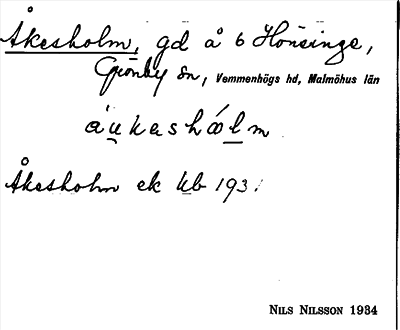 Åkesholm, gd å 6 Hönsinge,
Grönby sn, Vemmenhögs hd, Malmöhus län
áu̲kashó̲l̲m
Åkesholm ek kb 193.
NILS NILSSON 1934